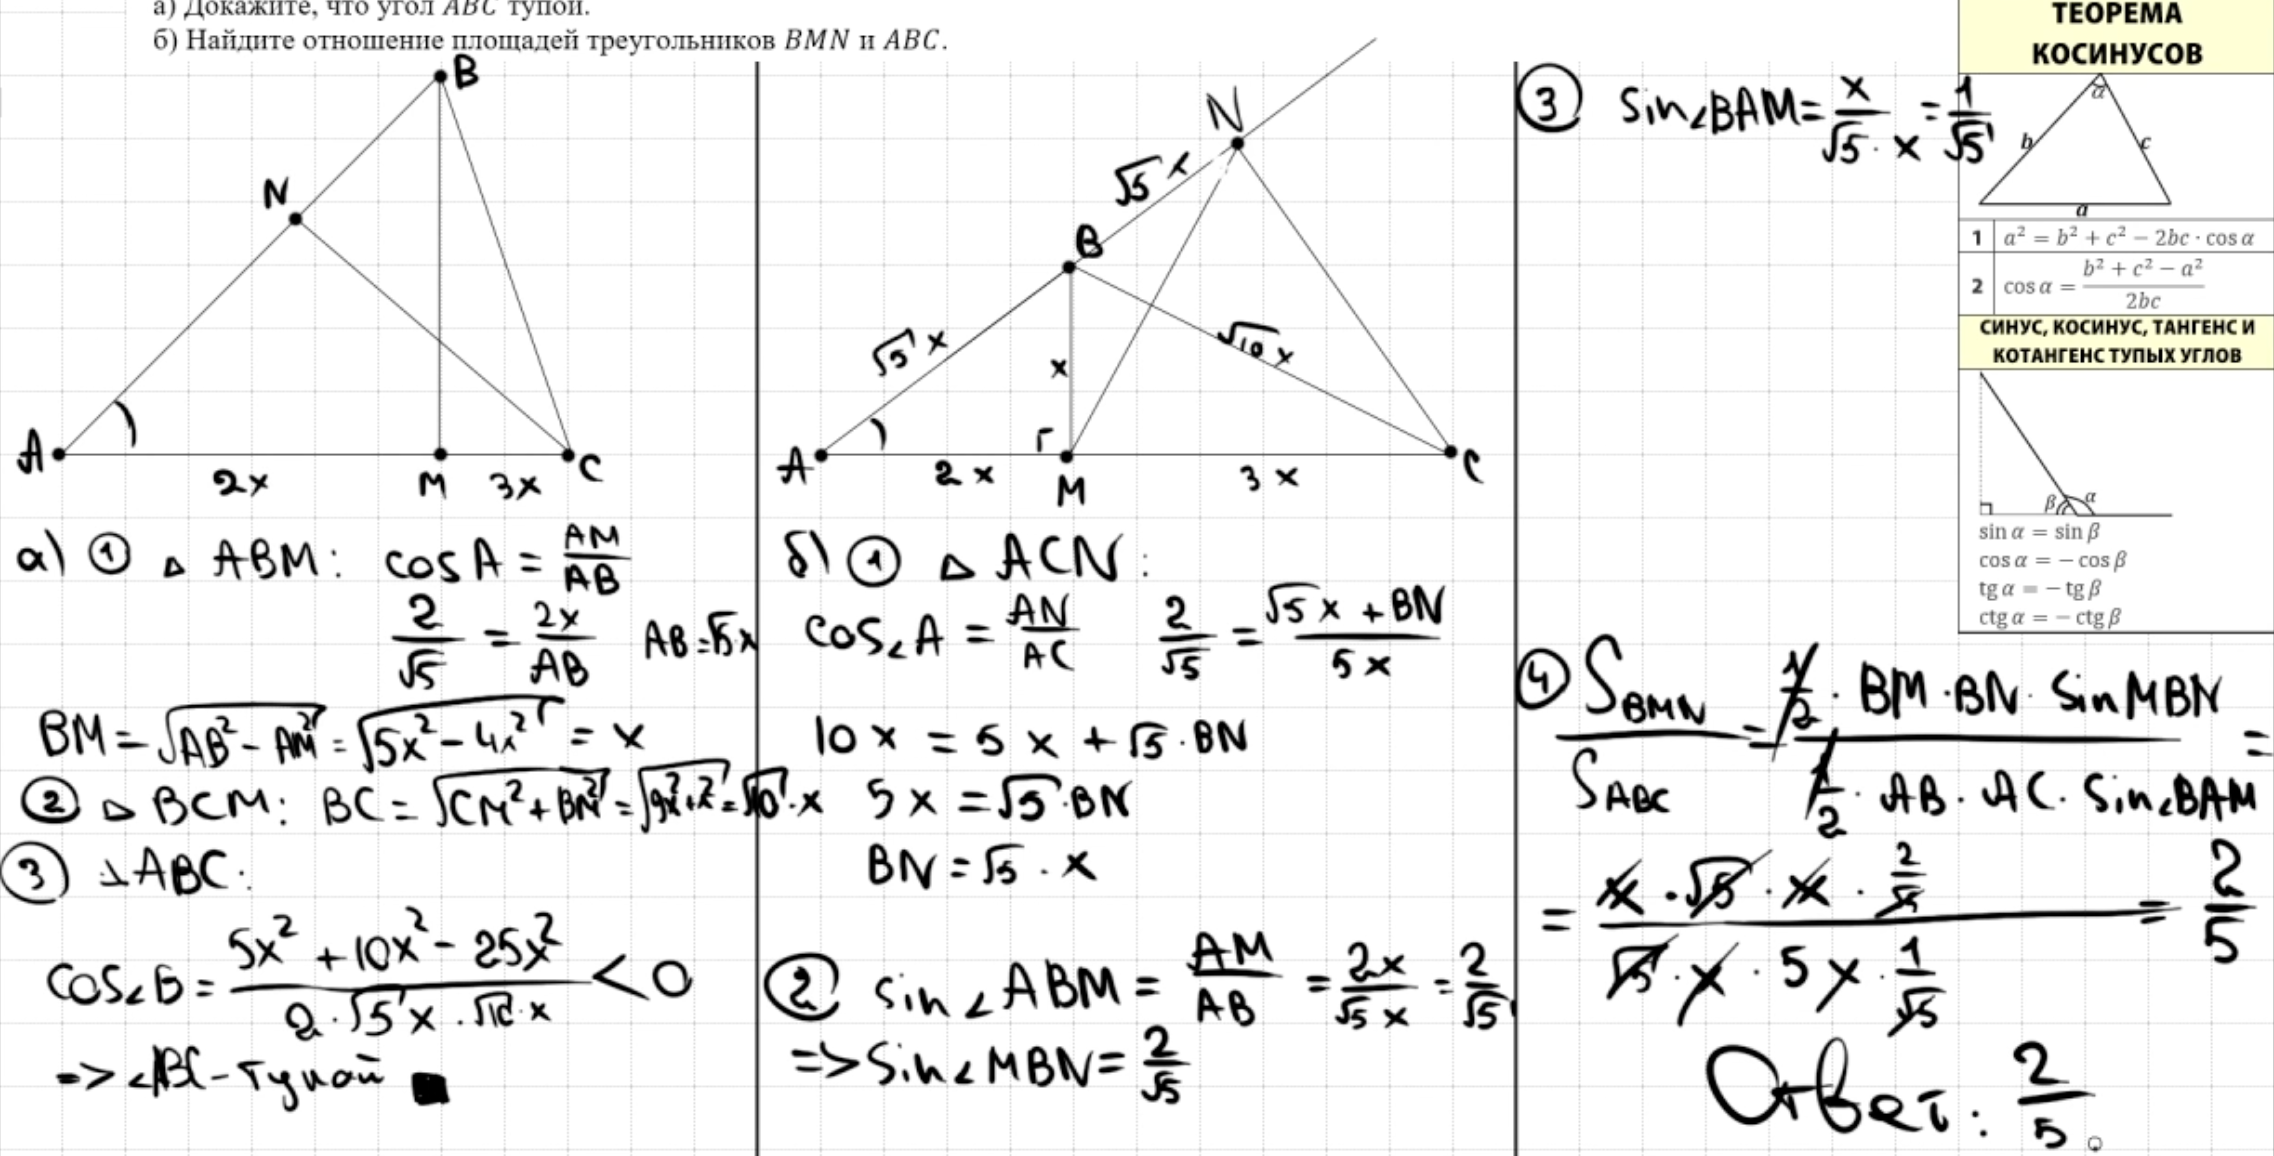 а) Докажите, что угол ABC тупой.
б) Найдите отношение площадей треугольников BMN и ABC.
B
N
A
2x
M
3x
C
а) ① △ ABM: cos A = AM/AB
2/√5 = 2x/AB AB = √5x
BM = √(AB² - AM²) = √(5x² - 4x²) = x
② △ BCM: BC = √(CM² + BM²) = √(9x² + x²) = √10 · x
③ △ ABC:
cos∠B = (5x² + 10x² - 25x²)/(2 · √5 x · √10 · x) < 0
=> ∠ABC - тупой ■
N
√5 x
B
√5 x
x
√10 x
A
2x
M
3x
C
б) ① △ ACN:
cos∠A = AN/AC 2/√5 = (√5 x + BN)/5x
10x = 5x + √5 · BN
5x = √5 · BN
BN = √5 · x
② sin∠ABM = AM/AB = 2x/√5 x = 2/√5
=> sin∠MBN = 2/√5
③ sin∠BAM = x/(√5 · x) = 1/√5
④ S BMN / S ABC = (1/2 · BM · BN · sin MBN)/(1/2 · AB · AC · sin∠BAM) =
= (x · √5 · x · 2/√5)/(√5 · x · 5x · 1/√5) = 2/5
Ответ: 2/5.
ТЕОРЕМА
КОСИНУСОВ
α
b
c
a
1 a² = b² + c² − 2bc · cos α
2 cos α = (b² + c² − a²)/2bc
СИНУС, КОСИНУС, ТАНГЕНС И
КОТАНГЕНС ТУПЫХ УГЛОВ
β α
sin α = sin β
cos α = − cos β
tg α = − tg β
ctg α = − ctg β